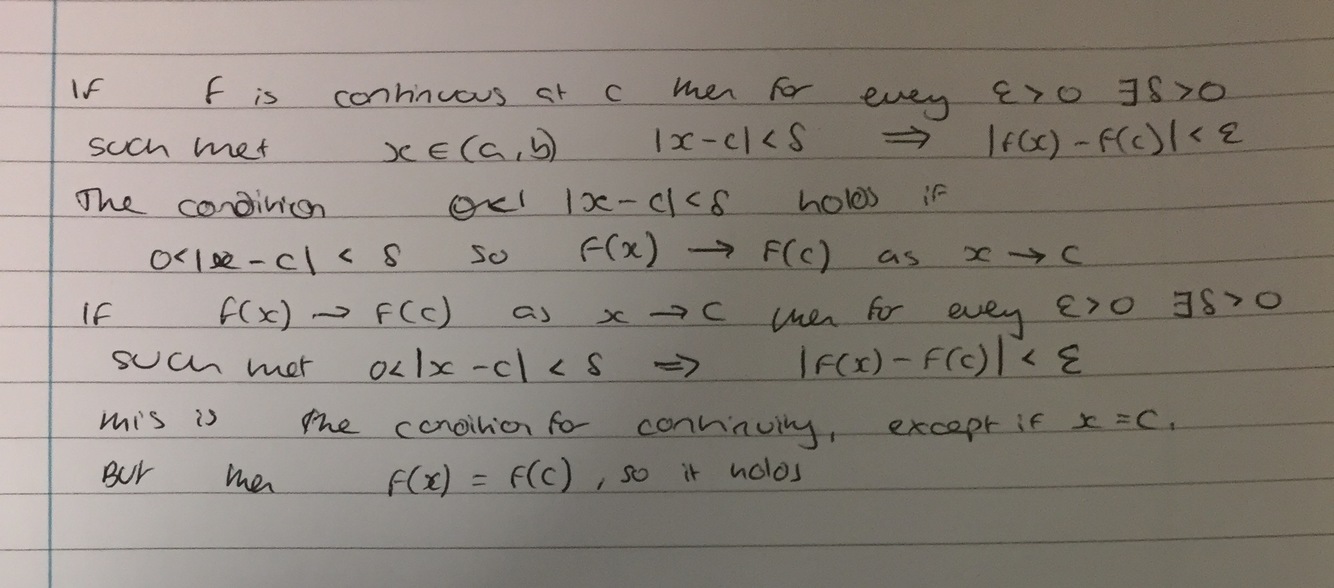 If f is continuous at c then for every ε>0 ∃δ>0
such that x∈(a,b) |x-c|<δ ⇒ |f(x)-f(c)|<ε
The condition |x-c|<δ holds if
0<|x-c|<δ so f(x)→f(c) as x→c
If f(x)→f(c) as x→c then for every ε>0 ∃δ>0
such that 0<|x-c|<δ ⇒ |f(x)-f(c)|<ε
This is the condition for continuity, except if x=c.
But then f(x)=f(c), so it holds